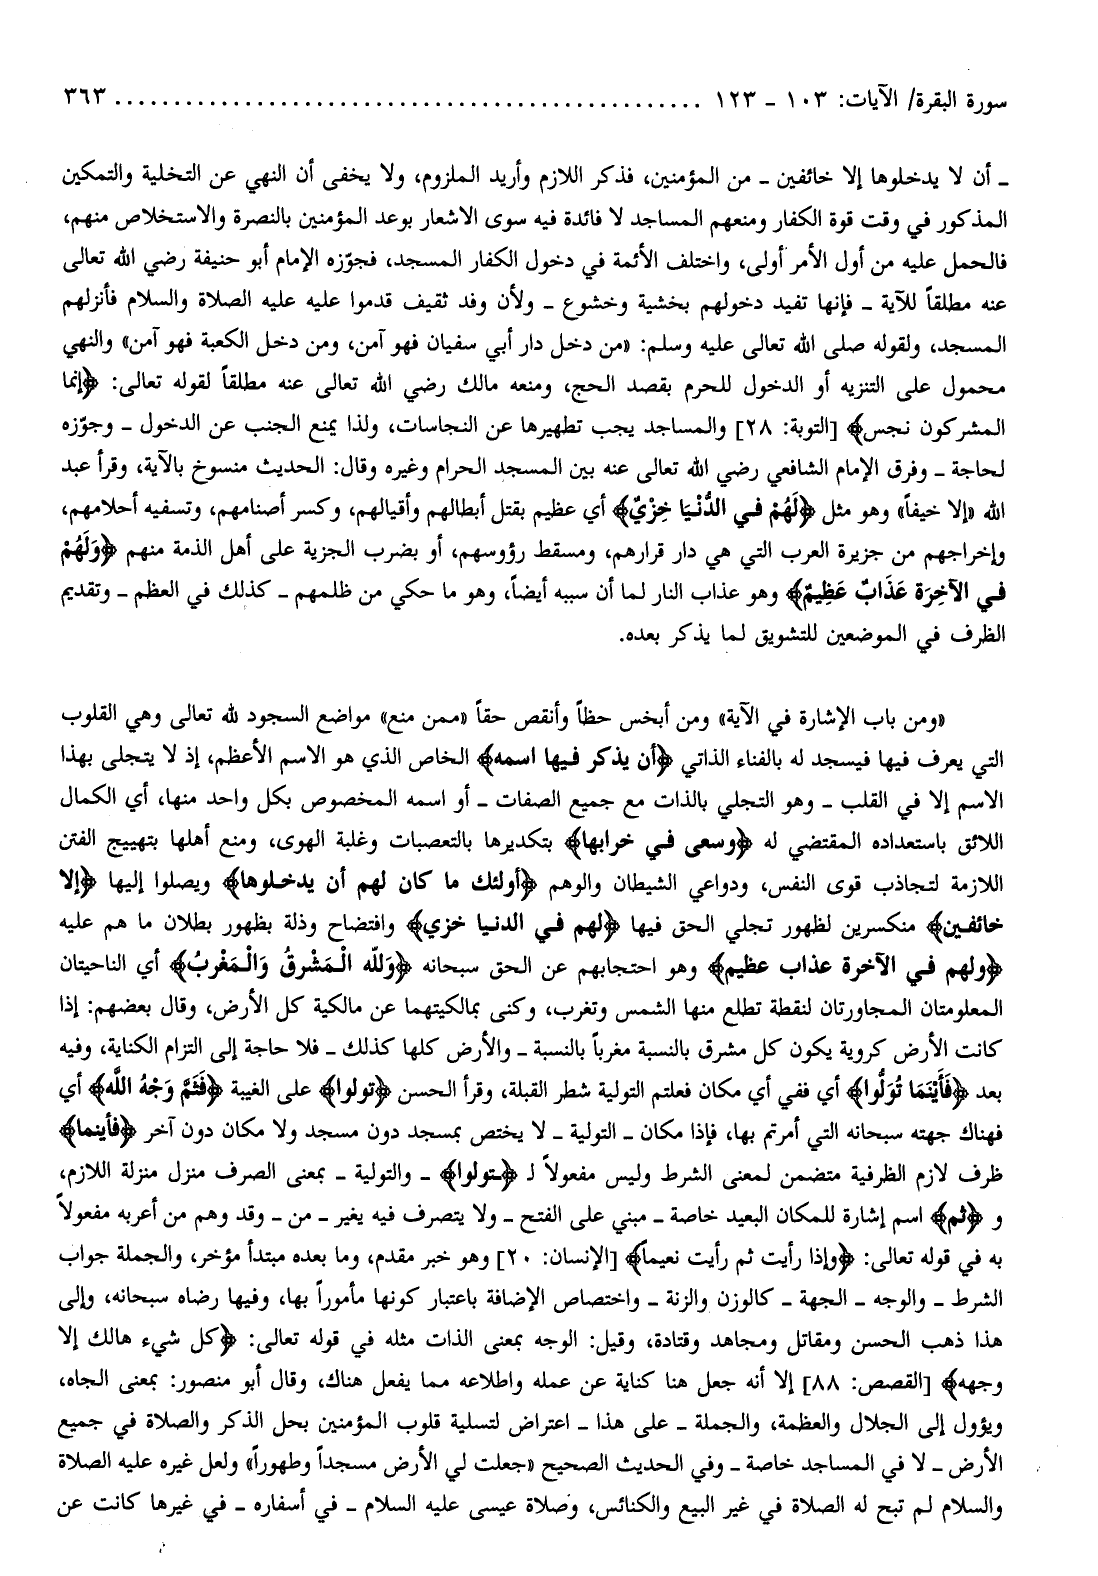 سورة البقرة/ الآيات: ١٠٣ - ١٢٣ ................................................ ٣٦٣
ـ أن لا يدخلوها إلا خائفين ـ من المؤمنين، فذكر اللازم وأريد الملزوم، ولا يخفى أن النهي عن التخلية والتمكين
المذكور في وقت قوة الكفار ومنعهم المساجد لا فائدة فيه سوى الاشعار بوعد المؤمنين بالنصرة والاستخلاص منهم،
فالحمل عليه من أول الأمر أولى، واختلف الأئمة في دخول الكفار المسجد، فجوّزه الإمام أبو حنيفة رضي الله تعالى
عنه مطلقاً للآية ـ فإنها تفيد دخولهم بخشية وخشوع ـ ولأن وفد ثقيف قدموا عليه عليه الصلاة والسلام فأنزلهم
المسجد، ولقوله صلى الله تعالى عليه وسلم: «من دخل دار أبي سفيان فهو آمن، ومن دخل الكعبة فهو آمن» والنهي
محمول على التنزيه أو الدخول للحرم بقصد الحج، ومنعه مالك رضي الله تعالى عنه مطلقاً لقوله تعالى: ﴿إنما
المشركون نجس﴾ [التوبة: ٢٨] والمساجد يجب تطهيرها عن النجاسات، ولذا يمنع الجنب عن الدخول ـ وجوّزه
لحاجة ـ وفرق الإمام الشافعي رضي الله تعالى عنه بين المسجد الحرام وغيره وقال: الحديث منسوخ بالآية، وقرأ عبد
الله «إلا خيفاً» وهو مثل ﴿لَهُمْ في الدُّنْيَا خِزْيٌ﴾ أي عظيم بقتل أبطالهم وأقيالهم، وكسر أصنامهم، وتسفيه أحلامهم،
وإخراجهم من جزيرة العرب التي هي دار قرارهم، ومسقط رؤوسهم، أو بضرب الجزية على أهل الذمة منهم ﴿وَلَهُمْ
في الآخِرَة عَذَابٌ عَظِيمٌ﴾ وهو عذاب النار لما أن سببه أيضاً، وهو ما حكي من ظلمهم ـ كذلك في العظم ـ وتقديم
الظرف في الموضعين للتشويق لما يذكر بعده.
«ومن باب الإشارة في الآية» ومن أبخس حظاً وأنقص حقاً «ممن منع» مواضع السجود لله تعالى وهي القلوب
التي يعرف فيها فيسجد له بالفناء الذاتي ﴿أن يذكر فيها اسمه﴾ الخاص الذي هو الاسم الأعظم، إذ لا يتجلى بهذا
الاسم إلا في القلب ـ وهو التجلي بالذات مع جميع الصفات ـ أو اسمه المخصوص بكل واحد منها، أي الكمال
اللائق باستعداده المقتضي له ﴿وسعى في خرابها﴾ بتكديرها بالتعصبات وغلبة الهوى، ومنع أهلها بتهييج الفتن
اللازمة لتجاذب قوى النفس، ودواعي الشيطان والوهم ﴿أولئك ما كان لهم أن يدخلوها﴾ ويصلوا إليها ﴿إلا
خائفين﴾ منكسرين لظهور تجلي الحق فيها ﴿لهم في الدنيا خزي﴾ وافتضاح وذلة بظهور بطلان ما هم عليه
﴿ولهم في الآخرة عذاب عظيم﴾ وهو احتجابهم عن الحق سبحانه ﴿وَللّه الْمَشْرقُ وَالْمَغْربُ﴾ أي الناحيتان
المعلومتان المجاورتان لنقطة تطلع منها الشمس وتغرب، وكنى بمالكيتهما عن مالكية كل الأرض، وقال بعضهم: إذا
كانت الأرض كروية يكون كل مشرق بالنسبة مغرباً بالنسبة ـ والأرض كلها كذلك ـ فلا حاجة إلى التزام الكناية، وفيه
بعد ﴿فَأَيْنَمَا تُوَلُّوا﴾ أي ففي أي مكان فعلتم التولية شطر القبلة، وقرأ الحسن ﴿تولوا﴾ على الغيبة ﴿فَثَمَّ وَجْهُ اللَّه﴾ أي
فهناك جهته سبحانه التي أمرتم بها، فإذا مكان ـ التولية ـ لا يختص بمسجد دون مسجد ولا مكان دون آخر ﴿فأينما﴾
ظرف لازم الظرفية متضمن لمعنى الشرط وليس مفعولاً لـ ﴿تولوا﴾ ـ والتولية ـ بمعنى الصرف منزل منزلة اللازم،
و ﴿ثم﴾ اسم إشارة للمكان البعيد خاصة ـ مبني على الفتح ـ ولا يتصرف فيه بغير ـ من ـ وقد وهم من أعربه مفعولاً
به في قوله تعالى: ﴿وإذا رأيت ثم رأيت نعيماً﴾ [الإنسان: ٢٠] وهو خبر مقدم، وما بعده مبتدأ مؤخر، والجملة جواب
الشرط ـ والوجه ـ الجهة ـ كالوزن والزنة ـ واختصاص الإضافة باعتبار كونها مأموراً بها، وفيها رضاه سبحانه، وإلى
هذا ذهب الحسن ومقاتل ومجاهد وقتادة، وقيل: الوجه بمعنى الذات مثله في قوله تعالى: ﴿كل شيء هالك إلا
وجهه﴾ [القصص: ٨٨] إلا أنه جعل هنا كناية عن عمله واطلاعه مما يفعل هناك، وقال أبو منصور: بمعنى الجاه،
ويؤول إلى الجلال والعظمة، والجملة ـ على هذا ـ اعتراض لتسلية قلوب المؤمنين بحل الذكر والصلاة في جميع
الأرض ـ لا في المساجد خاصة ـ وفي الحديث الصحيح «جعلت لي الأرض مسجداً وطهوراً» ولعل غيره عليه الصلاة
والسلام لم تبح له الصلاة في غير البيع والكنائس، وصلاة عيسى عليه السلام ـ في أسفاره ـ في غيرها كانت عن